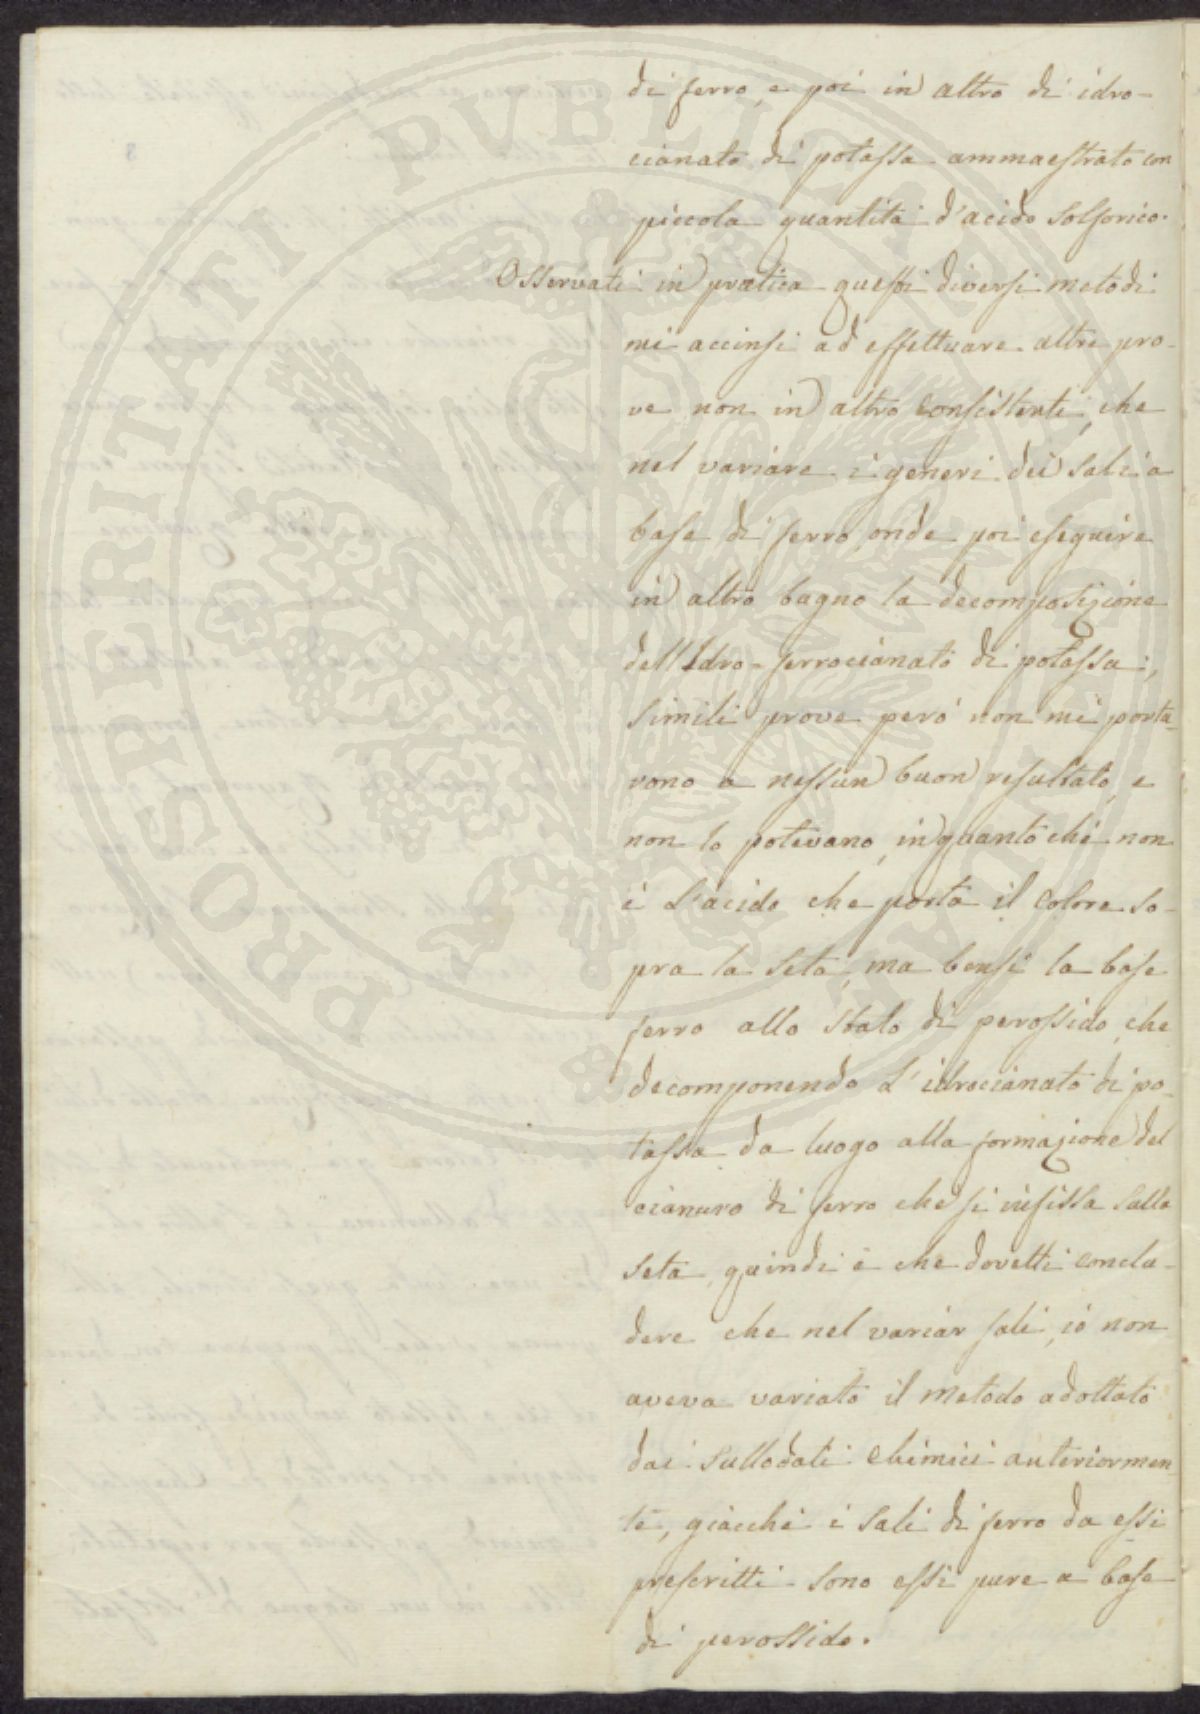 di ferro, e poi in altro di idro-
cianato di potassa ammaestrato con
piccola quantità d'acido solforico.
Osservati in pratica questi diversi metodi
mi accinsi ad effettuare altre pro-
ve non in altro consistenti, che
nel variare i generi dei sali a
base di ferro, onde poi eseguire
in altro bagno la decomposizione
dell'Idro-ferrocianato di potassa;
simili prove però non mi porta-
vono a nessun buon resultato, e
non lo potevano, in quanto chè non
è l'acido che porta il colore so-
pra la seta, ma bensì la base
ferro allo stato di perossido, che
decomponendo l'idrocianato di po-
tassa da luogo alla formazione del
cianuro di ferro che si infissa sulla
seta, quindi è che dovetti conclu-
dere che nel variar sali, io non
aveva variato il metodo adottato
dai sullodati chimici anteriormen-
te, giacchè i sali di ferro da essi
prescritti sono essi pure a base
di perossido.
PROSPERITATI PUBLICAE AUGENDAE